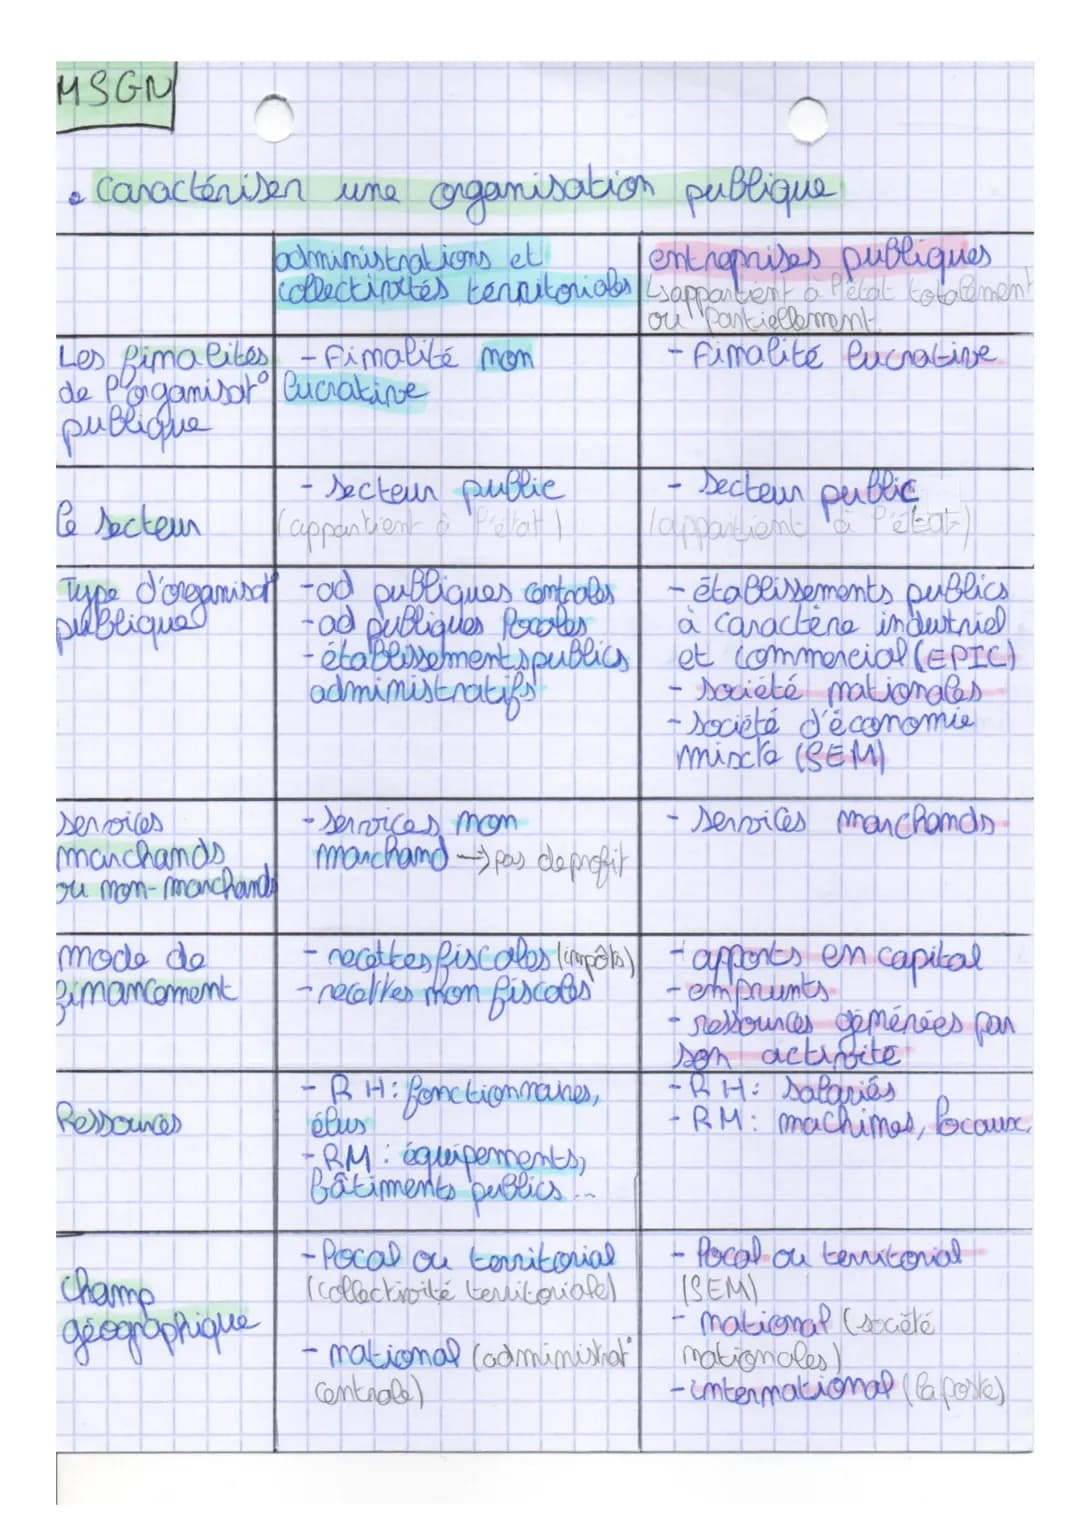 MSGN
• Caractériser une organisation publique
administrations et
collectivités territoriales
entreprises publiques
↳ appartient à l'état totalement
ou partiellement
Les finalités
de l'organisat°
publique
- Finalité non
lucrative
- Finalité lucrative
le secteur
- Secteur public
(appartient à l'état)
- Secteur public
(appartient à l'état)
Type d'organisat°
publique
- ad publiques centrales
- ad publiques locales
- établissements publics
administratifs
- établissements publics
à caractère industriel
et commercial (EPIC)
- société nationales
- société d'économie
mixte (SEM)
services
marchands
ou non-marchands
- Services non
marchand → pas de profit
- Services marchands
mode de
financement
- recettes fiscales (impôts)
- recettes non fiscales
- apports en capital
- emprunts
- ressources générées par
son activité
Ressources
- RH : fonctionnaires,
élus
- RM : équipements,
bâtiments publics...
- RH : salariés
- RM : machines, locaux.
champ
géographique
- local ou territorial
(collectivité territoriale)
- national (administrat°
centrale)
- local ou territorial
(SEM)
- national (société
nationales)
- international (la poste)